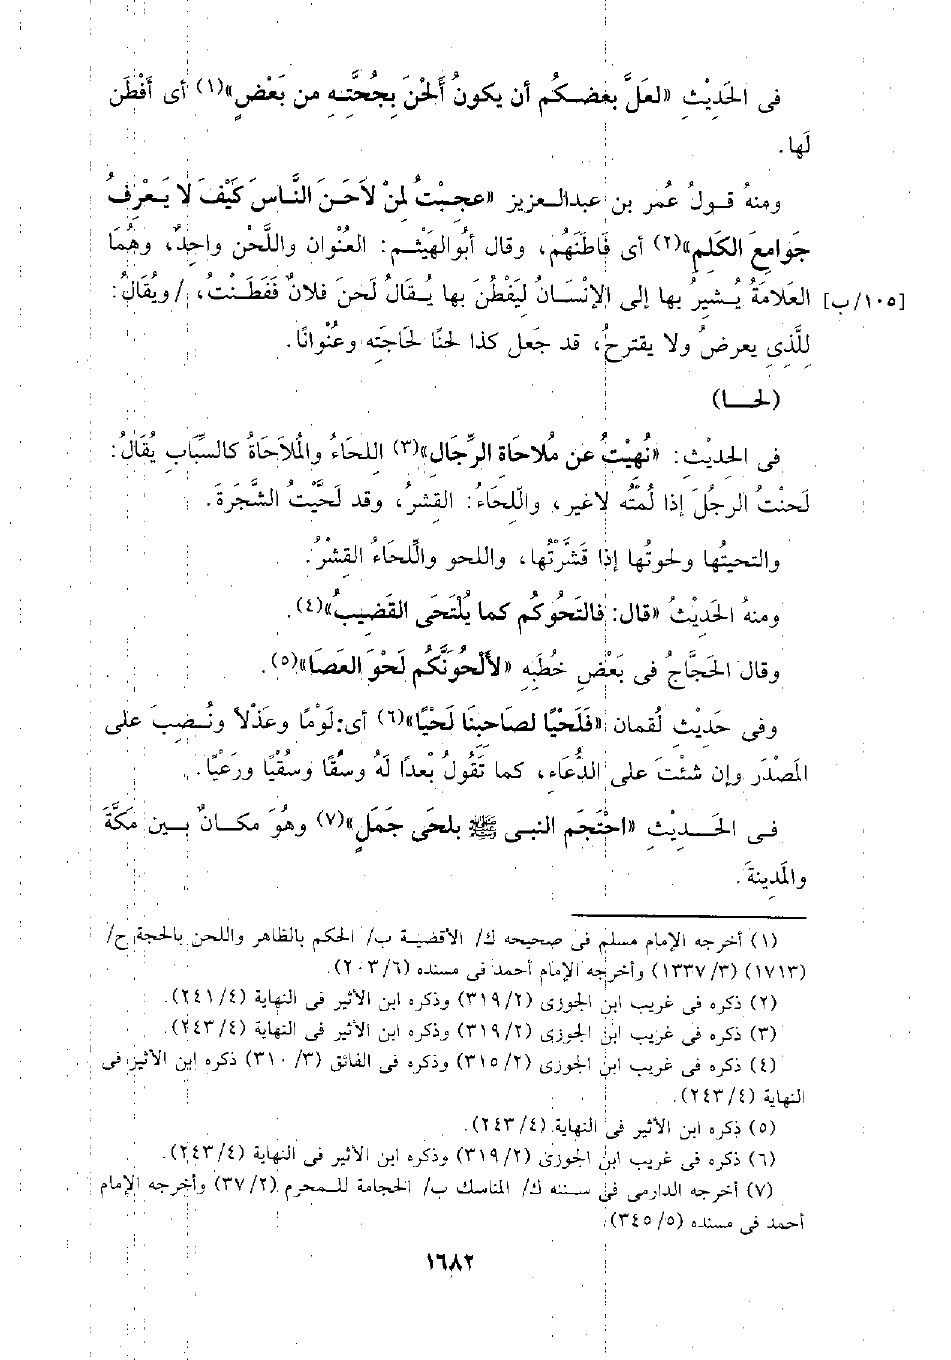 فى الحَدِيْثِ «لعَلَّ بعْضَـكُم أن يكونُ أَلحْنَ بِحُجَّتِـهِ من بَعْضٍ»(١) أى أَفْطَن
لَها.
ومنهُ قـولُ عُمر بن عبدالـعزيز «عجِبْتُ لمِنْ لاَحَـنَ النَّاسَ كَيْفَ لا يَـعْرِفُ
جَوامِعَ الكَلِمِ»(٢) أى فَاطَنَهُم، وقال أبُوالهَيْثـم: العُنْوان واللَّحْن واحِدٌ، وهُمَا
[١٠٥/ب] العَلامَةُ يُـشيرُ بها إلى الإنْسَـانُ ليَفْطُنَ بها يُـقَالُ لَحنَ فلانٌ فَفَطَنْتُ، / ويُقَالُ:
لِلَّذِى يعرضُ ولا يقترحُ، قد جَعل كذا لحنًا لحَاجَتِه وعُنْوانًا.
(لحـــا)
فى الحَدِيْثِ: «نُهِيْتُ عن مُلاحَاة الرِّجَال»(٣) اللحَاءُ والمُلاَحَاةُ كالسِّبَابِ يُقَالُ:
لَحنْتُ الرجُلَ إذا لُمْتُه لاغير، واللِّحَاءُ: القِشرُ، وقد لَحَيْتُ الشَّجَرةَ.
والتحيتُها ولحوتُها إذا قَشَّرْتُها، واللحو واللِّحَاءُ القِشْرُ.
ومنهُ الحَدِيْثُ «قال: فالتَحُوكُم كما يُلْتَحَى القَضِيبُ»(٤).
وقال الحَجَّاجُ فى بَعْضِ خُطَبِه «لأَلْحُوَنَّكُم لَحْوَ العَصَا»(٥).
وفى حَدِيْثِ لُقمان «فَلَحْيًا لصَاحِبنَا لَحْيًا»(٦) أى: لَوْمًا وعَذْلاً ونُـصِبَ على
المَصْدَر وإن شئْتَ على الدُّعَاء، كما تَقُولُ بُعدًا لَهُ وسقًا وسُقْيًا ورَعْيًا.
فـى الحَـــدِيْثِ «احْتَجَم النبـى ﷺ بلحَى جَمَلٍ»(٧) وهُوَ مكـانٌ بـين مَكَّةَ
والمَدِينةَ.
(١) أخرجه الإمام مسلم فى صحيحه ك/ الأقضيـة ب/ الحكم بالظاهر واللحن بالحجة ح/
(١٧١٣) (١٣٣٧/٣) وأخرجه الإمام أحمد فى مسنده (٢٠٣/٦).
(٢) ذكره فى غريب ابن الجوزى (٣١٩/٢) وذكره ابن الأثير فى النهاية (٢٤١/٤).
(٣) ذكره فى غريب ابن الجوزى (٣١٩/٢) وذكره ابن الأثير فى النهاية (٢٤٣/٤).
(٤) ذكره فى غريب ابن الجوزى (٣١٥/٢) وذكره فى الفائق (٣١٠/٣) ذكره ابن الأثير فى
النهاية (٢٤٣/٤).
(٥) ذكره ابن الأثير فى النهاية (٢٤٣/٤).
(٦) ذكره فى غريب ابن الجوزى (٣١٩/٢) وذكره ابن الأثير فى النهاية (٢٤٣/٤).
(٧) أخرجه الدارمى فى سـننه ك/ المناسك ب/ الحجامة للـمحرم (٣٧/٢) وأخرجه الإمام
أحمد فى مسنده (٣٤٥/٥).
١٦٨٢